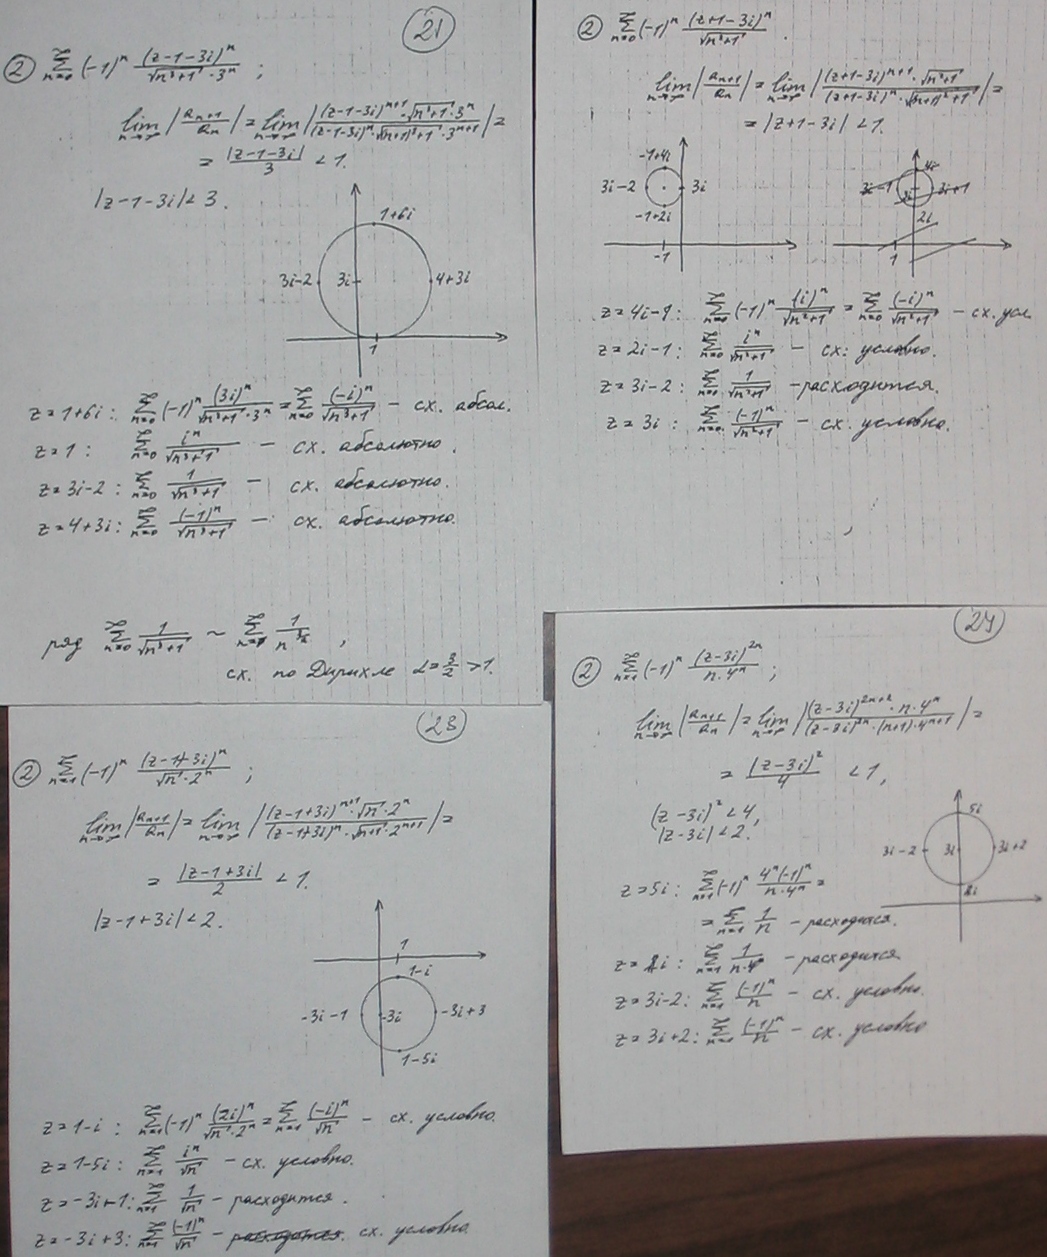 21
② ∑_{n=0}^{∞} (-1)^n (z-1-3i)^n / (√(n³+1) · 3^n) ;
lim_{n→∞} |a_{n+1}/a_n| = lim_{n→∞} |(z-1-3i)^{n+1} · √(n³+1) · 3^n / ((z-1-3i)^n · √((n+1)³+1) · 3^{n+1})| =
= |z-1-3i| / 3 < 1.
|z-1-3i| < 3.
1+6i
3i-2 3i 4+3i
1
z=1+6i: ∑_{n=0}^{∞} (-1)^n (3i)^n / (√(n³+1) · 3^n) = ∑_{n=0}^{∞} (-i)^n / √(n³+1) – сх. абсол.
z=1: ∑_{n=0}^{∞} i^n / √(n³+1) – сх. абсолютно.
z=3i-2: ∑_{n=0}^{∞} 1 / √(n³+1) – сх. абсолютно.
z=4+3i: ∑_{n=0}^{∞} (-1)^n / √(n³+1) – сх. абсолютно.
ряд ∑_{n=0}^{∞} 1 / √(n³+1) ~ ∑ 1 / n^{3/2} ,
сх. по Дирихле α = 3/2 > 1.
② ∑_{n=0}^{∞} (-1)^n (z+1-3i)^n / √(n²+1) .
lim_{n→∞} |a_{n+1}/a_n| = lim_{n→∞} |(z+1-3i)^{n+1} · √(n²+1) / ((z+1-3i)^n · √((n+1)²+1))| =
= |z+1-3i| < 1.
-1+4i
3i-2 3i
-1+2i
-1
4i
3i-1 3i 3i+1
2i
1
z=4i-1: ∑_{n=0}^{∞} (-1)^n (i)^n / √(n²+1) = ∑_{n=0}^{∞} (-i)^n / √(n²+1) – сх. усл.
z=2i-1: ∑_{n=0}^{∞} i^n / √(n²+1) – сх. условно.
z=3i-2: ∑_{n=0}^{∞} 1 / √(n²+1) – расходится.
z=3i: ∑_{n=0}^{∞} (-1)^n / √(n²+1) – сх. условно.
23
② ∑_{n=1}^{∞} (-1)^n (z-1+3i)^n / (√n · 2^n) ;
lim_{n→∞} |a_{n+1}/a_n| = lim_{n→∞} |(z-1+3i)^{n+1} · √n · 2^n / ((z-1+3i)^n · √(n+1) · 2^{n+1})| =
= |z-1+3i| / 2 < 1.
|z-1+3i| < 2.
1
1-i
-3i-1 -3i -3i+3
1-5i
z=1-i: ∑_{n=1}^{∞} (-1)^n (2i)^n / (√n · 2^n) = ∑_{n=1}^{∞} (-i)^n / √n – сх. условно.
z=1-5i: ∑_{n=1}^{∞} i^n / √n – сх. условно.
z=-3i+1: ∑_{n=1}^{∞} 1 / √n – расходится.
z=-3i+3: ∑_{n=1}^{∞} (-1)^n / √n – расходится. сх. условно.
24
② ∑_{n=1}^{∞} (-1)^n (z-3i)^{2n} / (n · 4^n) ;
lim_{n→∞} |a_{n+1}/a_n| = lim_{n→∞} |(z-3i)^{2n+2} · n · 4^n / ((z-3i)^{2n} · (n+1) · 4^{n+1})| =
= |(z-3i)² / 4 < 1,
(z-3i)² < 4,
|z-3i| < 2.
5i
3i-2 3i 3i+2
i
z=5i: ∑_{n=1}^{∞} (-1)^n 4^n (-1)^n / (n · 4^n) =
= ∑_{n=1}^{∞} 1/n – расходится.
z=i: ∑_{n=1}^{∞} 1 / n – расходится
z=3i-2: ∑_{n=1}^{∞} (-1)^n / n – сх. условно.
z=3i+2: ∑_{n=1}^{∞} (-1)^n / n – сх. условно